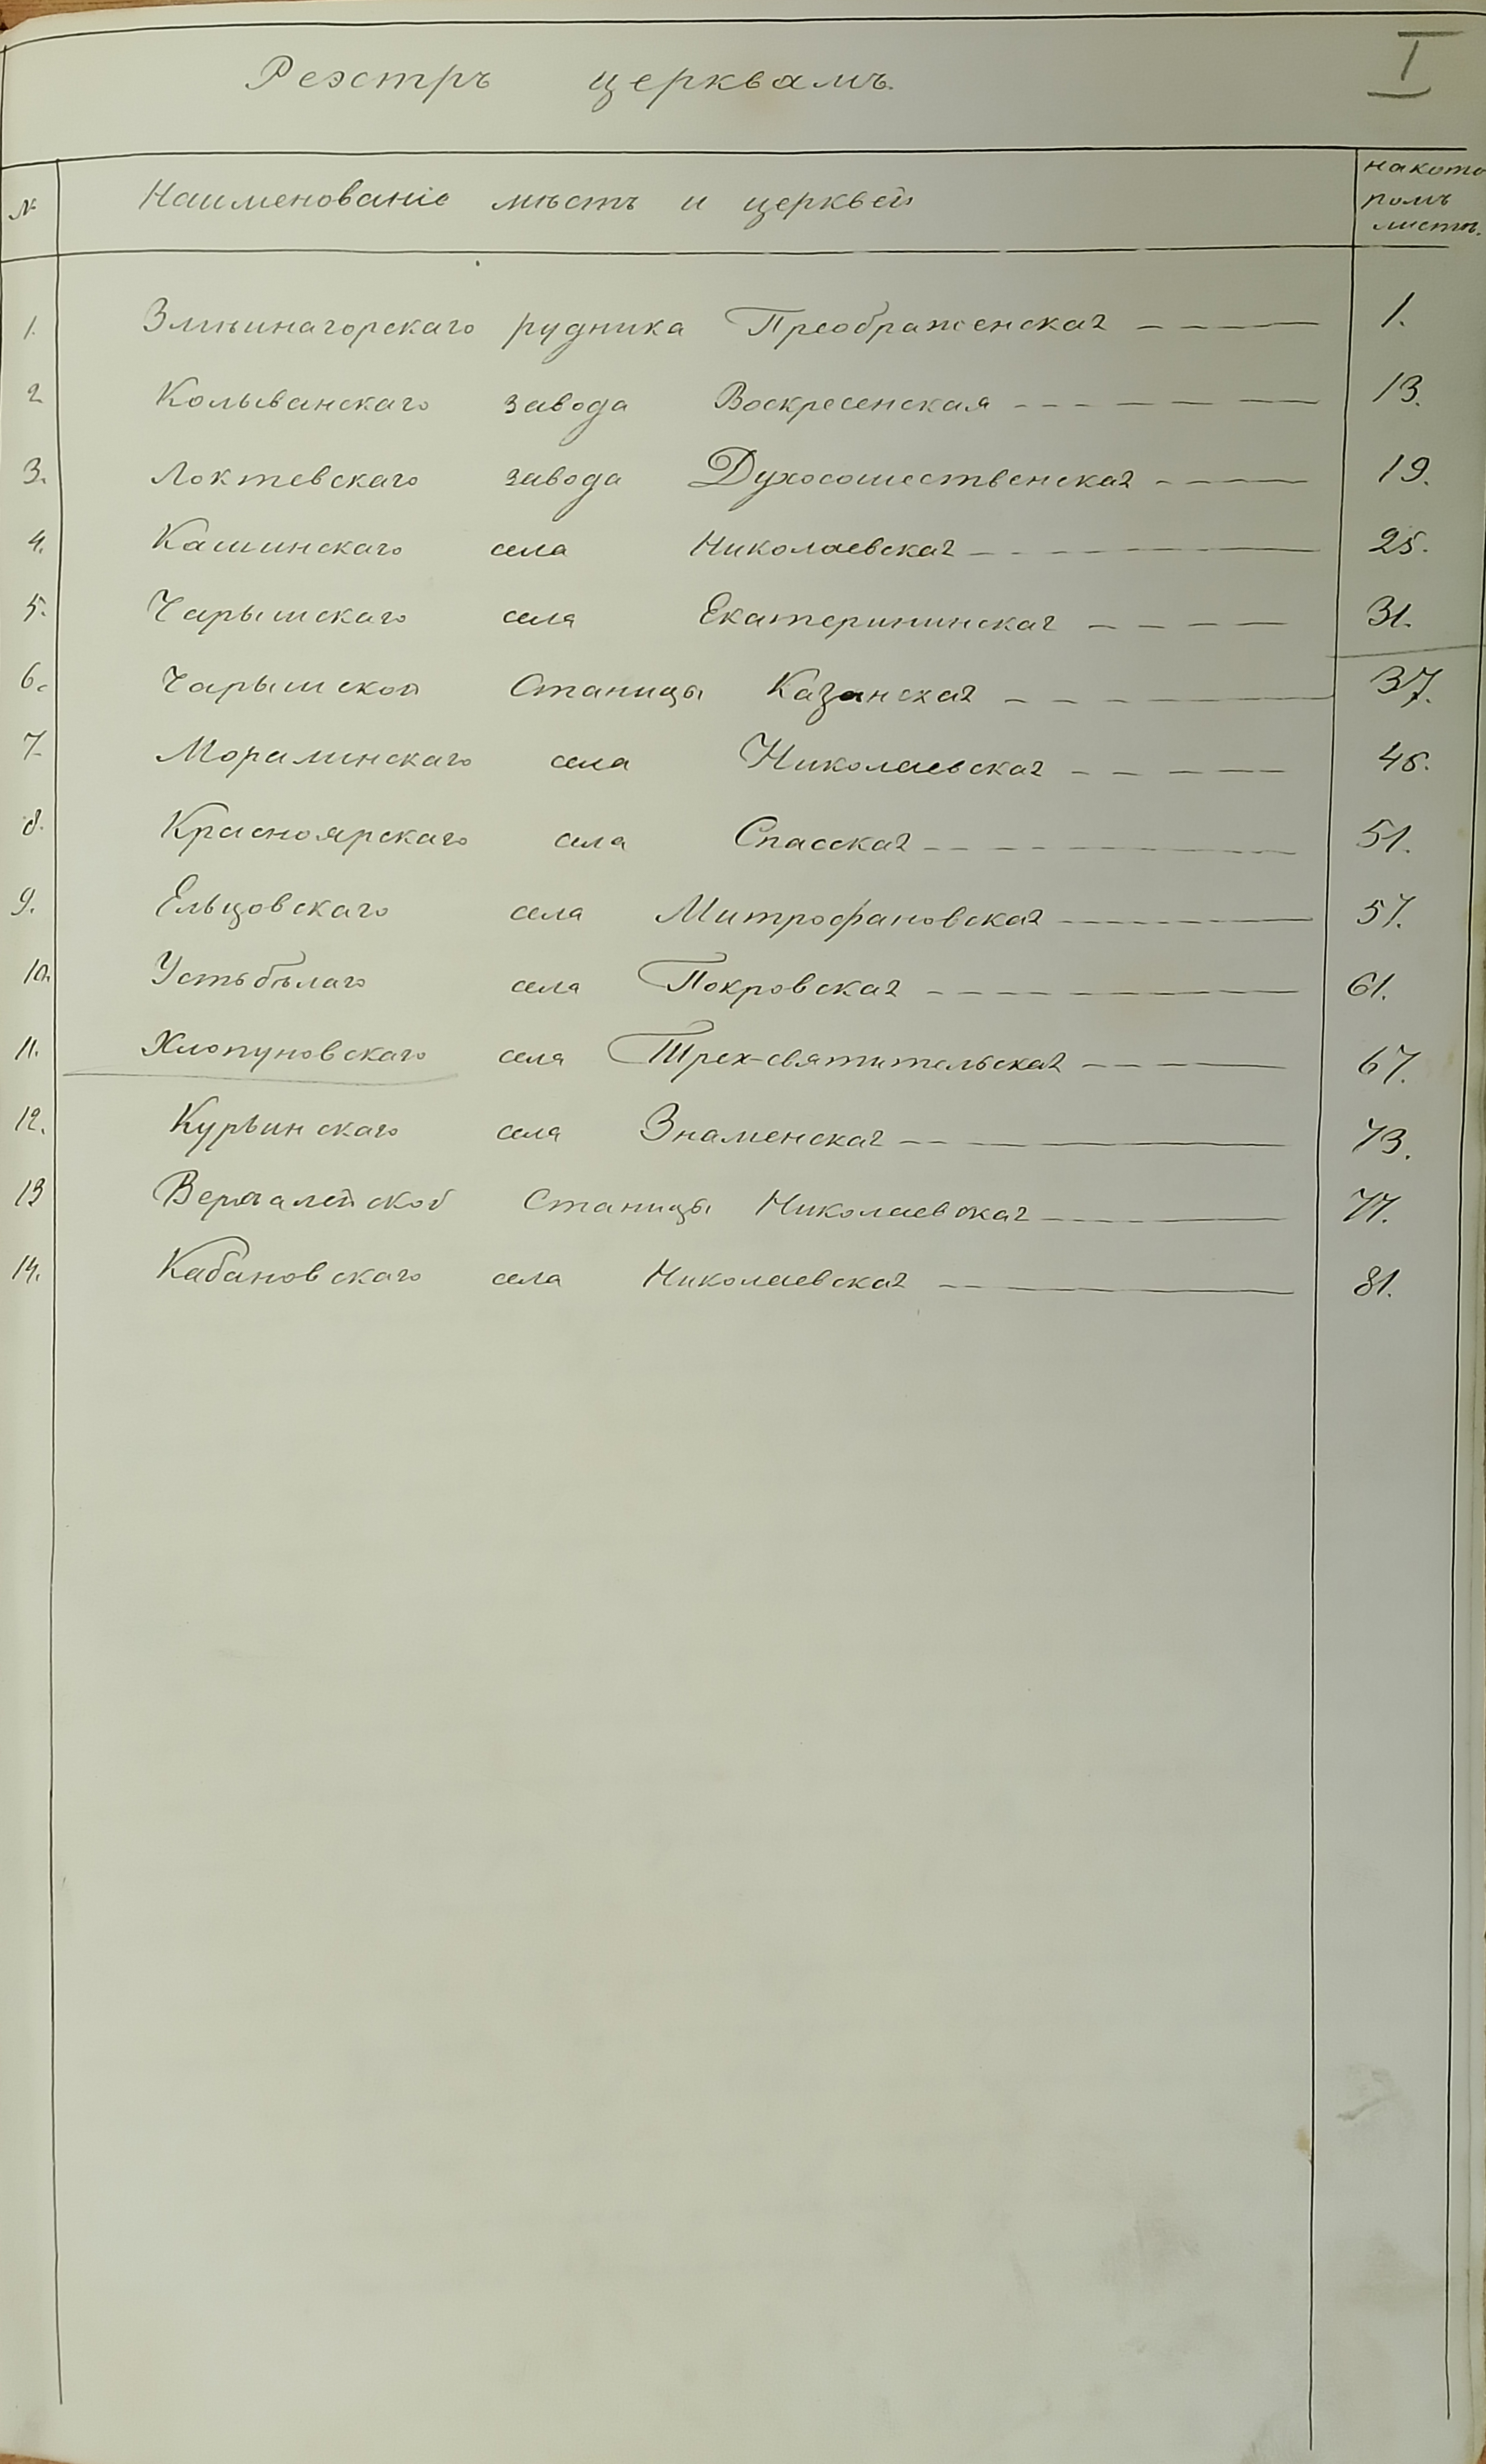 I
Реэстръ церквамъ.
№ Наименованіе мѣстъ и церквей на кото
ромъ
листѣ.
1. Змѣиногорскаго рудника Преображенская — — — — 1.
2 Колыванскаго завода Воскресенская — — — — 13.
3. Локтевскаго завода Духосошественская — — — — 19.
4. Кашинскаго села Николаевская — — — — 25.
5. Чарышскаго села Екатерининская — — — — 31.
6. Чарышской Станицы Казанская — — — — 37.
7. Моралинскаго села Николаевская — — — — 45.
8. Красноярскаго села Спасская — — — — 51.
9. Ельцовскаго села Митрофановская — — — — 57.
10. Устьбѣлаго села Покровская — — — — 61.
11. Хлопуновскаго села Трех-святительская — — — — 67.
12. Курьинскаго села Знаменская — — — 73.
13 Верхалейской Станицы Николаевская — — — 77.
14. Кабановскаго села Николаевская — — 81.